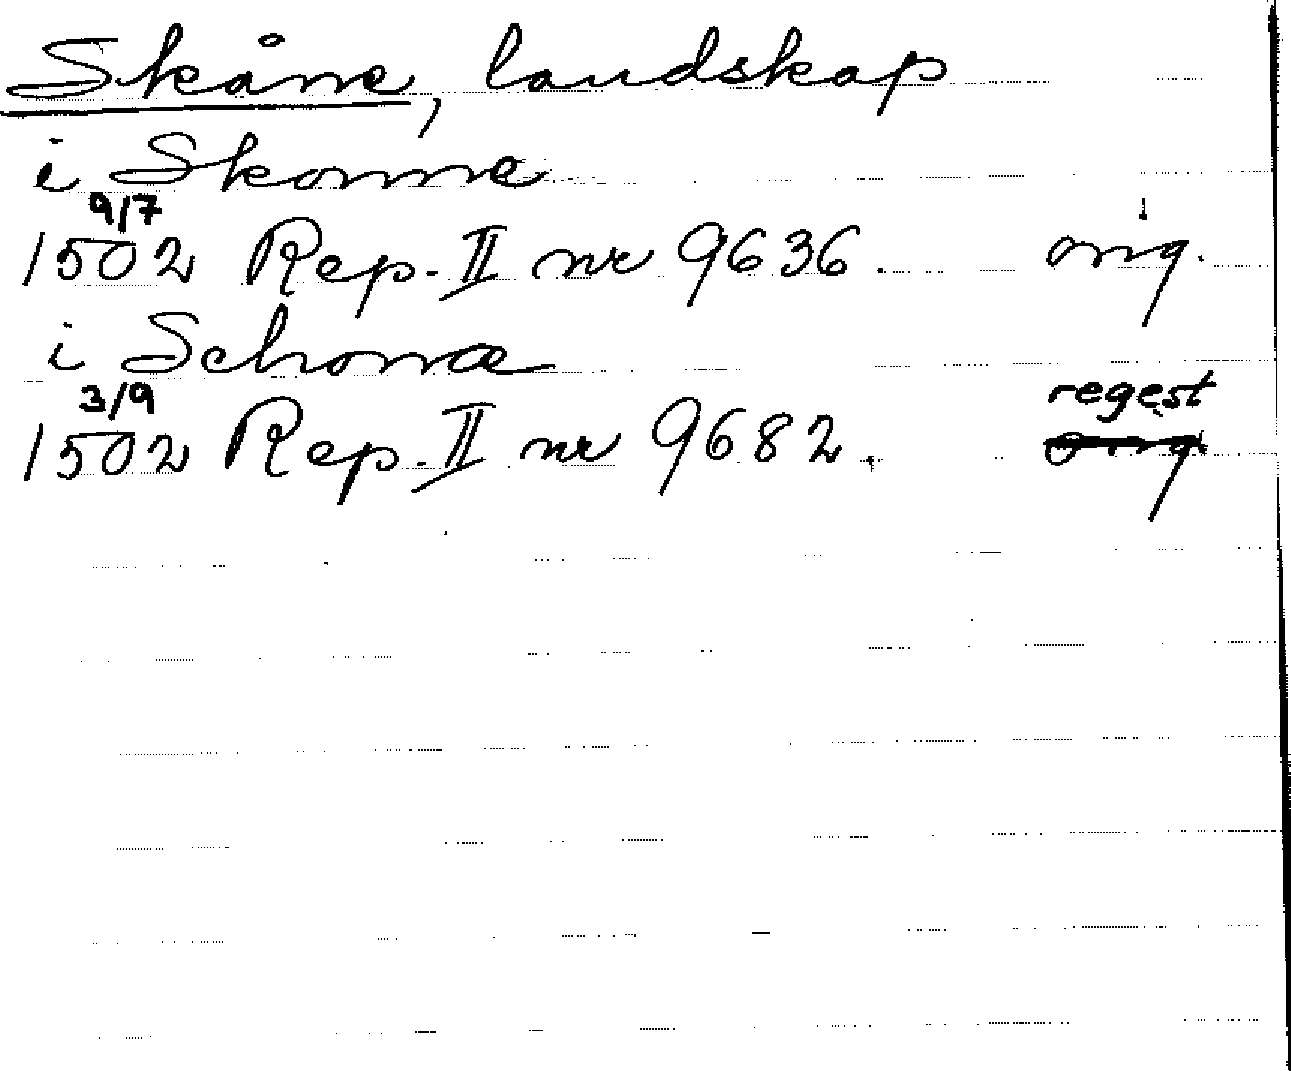 Skåne, landskap
i Skonne
9/7
1502 Rep. II nr 9636. orig.
i Schonæ
3/9 regest
1502 Rep. II nr 9682. orig.